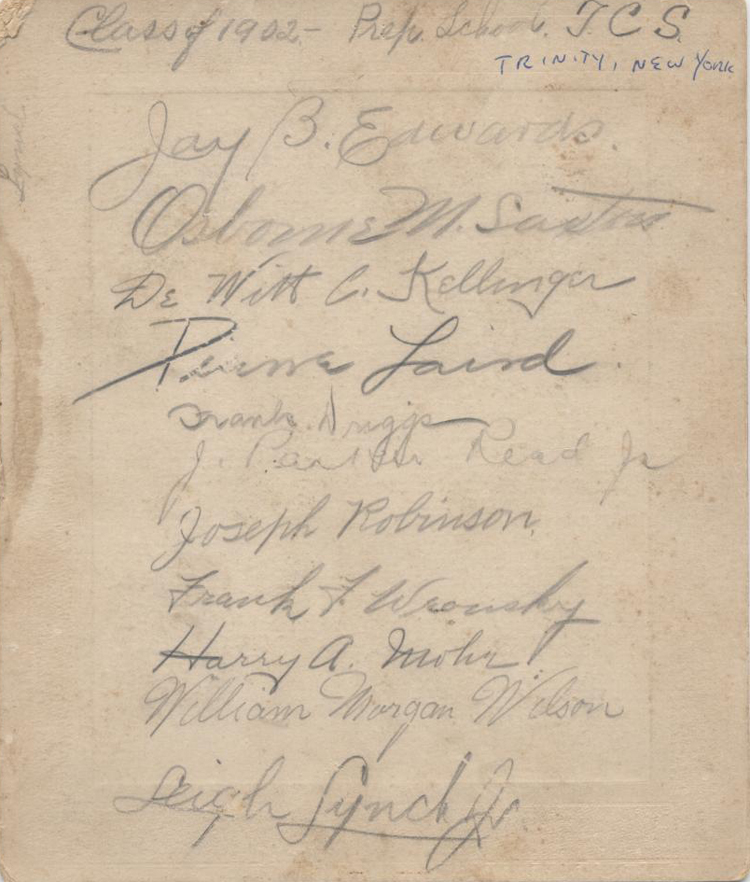 Class of 1902- Prep. School. T C S.
TRINITY, NEW YORK
Jay B. Edwards.
Osborne M.
De Witt C. Kellinger
Laird
Frank Driggs
J. Parker Read Jr
Joseph Robinson.
Frank F Wronsky
Harry A. Mohr
William Morgan Wilson
Leigh Lynch Jr.